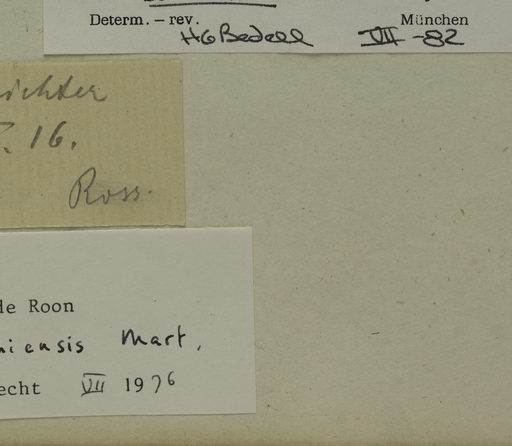 Determ. – rev. München
HGBedell VII -82
ichter
. 16.
Ross.
de Roon
iensis Mart.
echt VII 1976